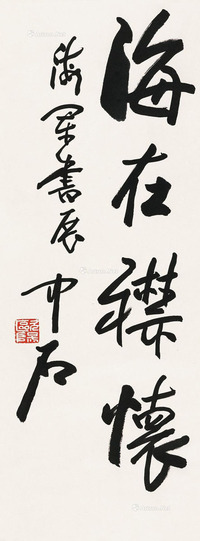 海在襟懷
海军書展
中石